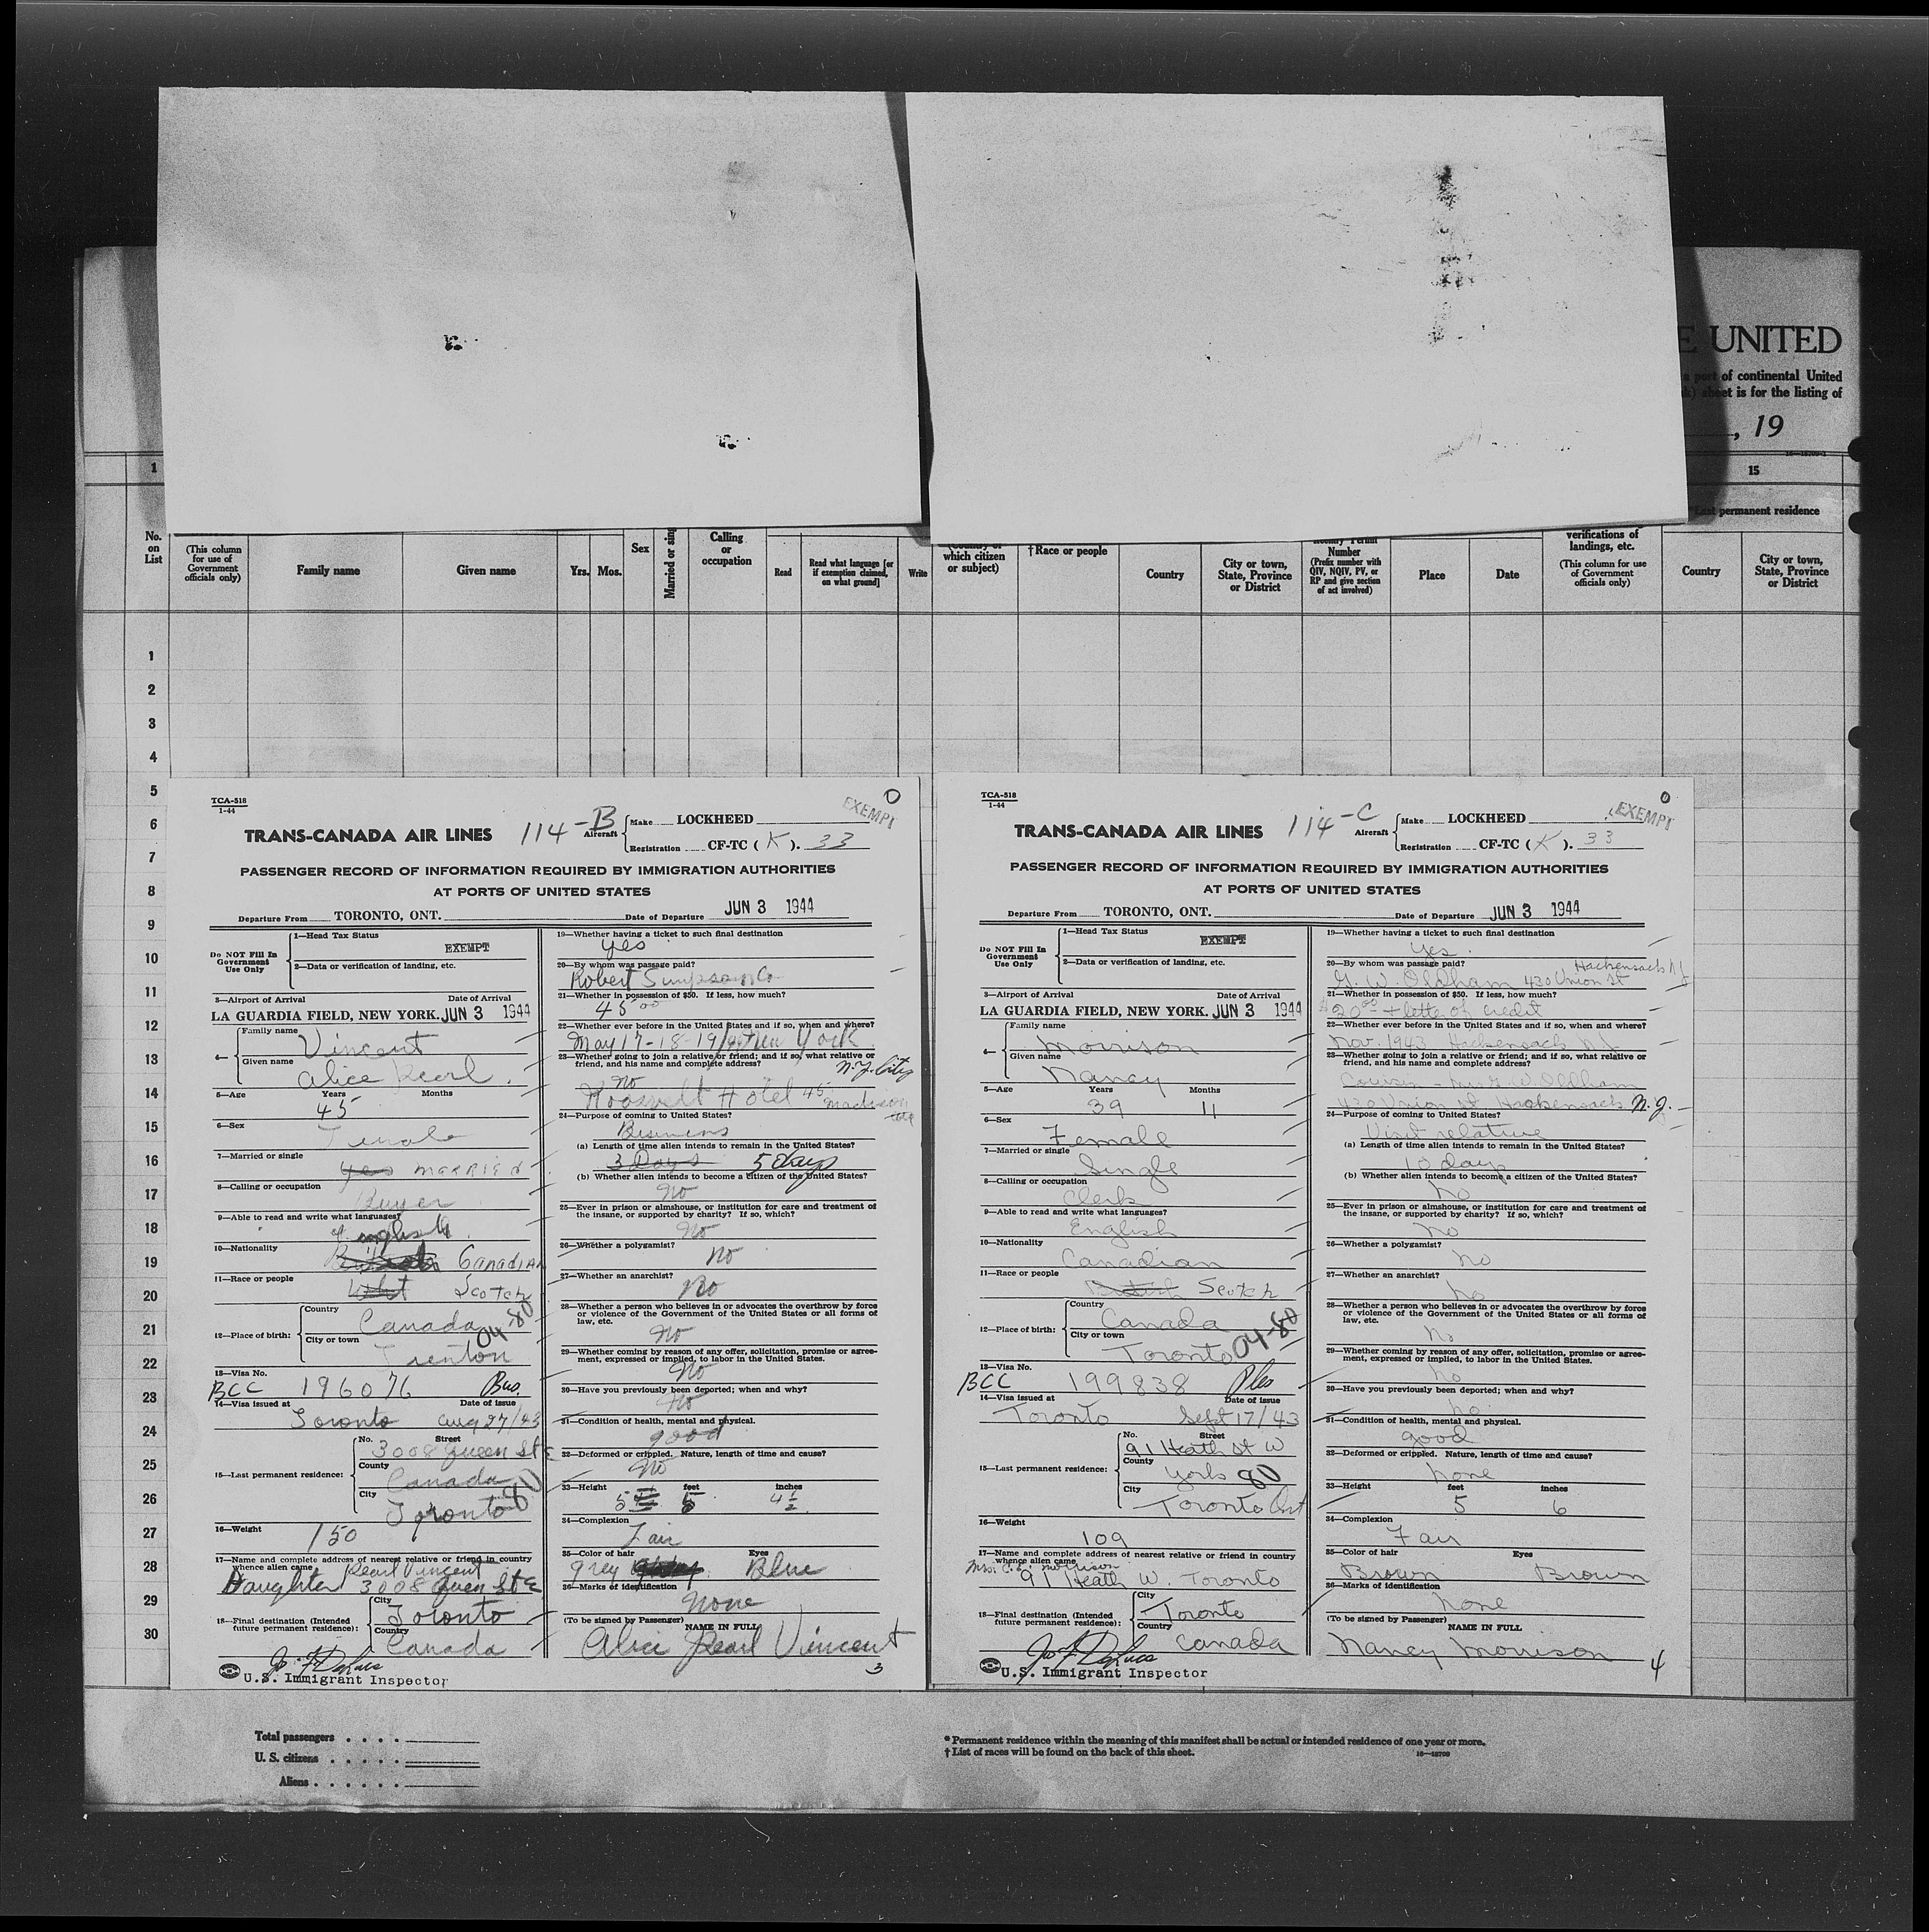 E UNITED
a part of continental United
sheet is for the listing of
, 19
1
15
permanent residence
No. on List
(This column for use of Government officials only)
Family name
Given name
Yrs. Mos.
Sex
Married or sing
Calling or occupation
Read
Read what language [or if exemption claimed, on what ground]
Write
which citizen or subject)
†Race or people
Country
City or town, State, Province or District
Number (Prefix number with QIV, NQIV, PV, or RP and give section of act involved)
Place
Date
verifications of landings, etc. (This column for use of Government officials only)
Country
City or town, State, Province or District
1
2
3
4
5
6
7
8
9
10
11
12
13
14
15
16
17
18
19
20
21
22
23
24
25
26
27
28
29
30
TCA-518
1-44
EXEMPT
TRANS-CANADA AIR LINES 114-B Aircraft
Make LOCKHEED
Registration CF-TC ( K ). 33
PASSENGER RECORD OF INFORMATION REQUIRED BY IMMIGRATION AUTHORITIES
AT PORTS OF UNITED STATES
Departure From TORONTO, ONT. Date of Departure JUN 3 1944
Do NOT Fill In Government Use Only
1—Head Tax Status
EXEMPT
2—Data or verification of landing, etc.
3—Airport of Arrival Date of Arrival
LA GUARDIA FIELD, NEW YORK. JUN 3 1944
4— Family name Vincent
Given name Alice Pearl
5—Age Years Months
45
6—Sex Female
7—Married or single
yes MARRIED
8—Calling or occupation
Buyer
9—Able to read and write what languages?
English
10—Nationality
Canadian
11—Race or people
Scotch
12—Place of birth: Country Canada
City or town Trenton
04-80
13—Visa No.
BCC 196076 Bus.
14—Visa issued at Date of issue
Toronto Aug 27/43
15—Last permanent residence:
No. Street
3008 Queen St E
County
Canada
City
Toronto
80
16—Weight 150
17—Name and complete address of nearest relative or friend in country whence alien came
Pearl Vincent
Daughter 3008 Queen St E
18—Final destination (Intended future permanent residence):
City Toronto
Country Canada
U.S. Immigrant Inspector
19—Whether having a ticket to such final destination
yes
20—By whom was passage paid?
Robert Simpson Co
21—Whether in possession of $50. If less, how much?
45 00
22—Whether ever before in the United States and if so, when and where?
May 17-18-19/44 New York
23—Whether going to join a relative or friend; and if so, what relative or friend, and his name and complete address?
N.Y. City
no
Roosevelt Hotel 45 Madison Ave
24—Purpose of coming to United States?
Business
(a) Length of time alien intends to remain in the United States?
3 Days 5 days
(b) Whether alien intends to become a citizen of the United States?
No
25—Ever in prison or almshouse, or institution for care and treatment of the insane, or supported by charity? If so, which?
No
26—Whether a polygamist?
No
27—Whether an anarchist?
No
28—Whether a person who believes in or advocates the overthrow by force or violence of the Government of the United States or all forms of law, etc.
No
29—Whether coming by reason of any offer, solicitation, promise or agreement, expressed or implied, to labor in the United States.
No
30—Have you previously been deported; when and why?
No
31—Condition of health, mental and physical.
good
32—Deformed or crippled. Nature, length of time and cause?
No
33—Height feet inches
5 4½
34—Complexion
Fair
35—Color of hair Eyes
grey Blue
36—Marks of identification
none
(To be signed by Passenger) NAME IN FULL
Alice Pearl Vincent
3
TCA-518
1-44
EXEMPT
TRANS-CANADA AIR LINES 114-C Aircraft
Make LOCKHEED
Registration CF-TC ( K ). 33
PASSENGER RECORD OF INFORMATION REQUIRED BY IMMIGRATION AUTHORITIES
AT PORTS OF UNITED STATES
Departure From TORONTO, ONT. Date of Departure JUN 3 1944
Do NOT Fill In Government Use Only
1—Head Tax Status
EXEMPT
2—Data or verification of landing, etc.
3—Airport of Arrival Date of Arrival
LA GUARDIA FIELD, NEW YORK. JUN 3 1944
4— Family name Morrison
Given name Nancy
5—Age Years Months
39 11
6—Sex
Female
7—Married or single
Single
8—Calling or occupation
Clerk
9—Able to read and write what languages?
English
10—Nationality
Canadian
11—Race or people
Scotch
12—Place of birth: Country Canada
City or town Toronto
04-80
13—Visa No.
BCC 199838 Ples
14—Visa issued at Date of issue
Toronto Sept 17/43
15—Last permanent residence:
No. Street
91 Heath St W
County
York 80
City
Toronto Ont
16—Weight
109
17—Name and complete address of nearest relative or friend in country whence alien came
Mrs. C.E. Morrison
91 Heath W. Toronto
18—Final destination (Intended future permanent residence):
City Toronto
Country Canada
U.S. Immigrant Inspector
19—Whether having a ticket to such final destination
Yes
20—By whom was passage paid?
Hackensack N.J.
G. W. Oldham 430 Union St
21—Whether in possession of $50. If less, how much?
$20 00 + letter of credit
22—Whether ever before in the United States and if so, when and where?
Nov. 1943 Hackensack N.J.
23—Whether going to join a relative or friend; and if so, what relative or friend, and his name and complete address?
Cousin - Mrs G. W. Oldham
430 Union St Hackensack N.J.
24—Purpose of coming to United States?
Visit relative
(a) Length of time alien intends to remain in the United States?
10 days
(b) Whether alien intends to become a citizen of the United States?
No
25—Ever in prison or almshouse, or institution for care and treatment of the insane, or supported by charity? If so, which?
No
26—Whether a polygamist?
No
27—Whether an anarchist?
No
28—Whether a person who believes in or advocates the overthrow by force or violence of the Government of the United States or all forms of law, etc.
No
29—Whether coming by reason of any offer, solicitation, promise or agreement, expressed or implied, to labor in the United States.
No
30—Have you previously been deported; when and why?
No
31—Condition of health, mental and physical.
good
32—Deformed or crippled. Nature, length of time and cause?
none
33—Height feet inches
5 6
34—Complexion
Fair
35—Color of hair Eyes
Brown Brown
36—Marks of identification
none
(To be signed by Passenger) NAME IN FULL
Nancy Morrison
4
Total passengers . . . .
U. S. citizens . . . . .
Aliens . . . . . .
* Permanent residence within the meaning of this manifest shall be actual or intended residence of one year or more.
† List of races will be found on the back of this sheet.